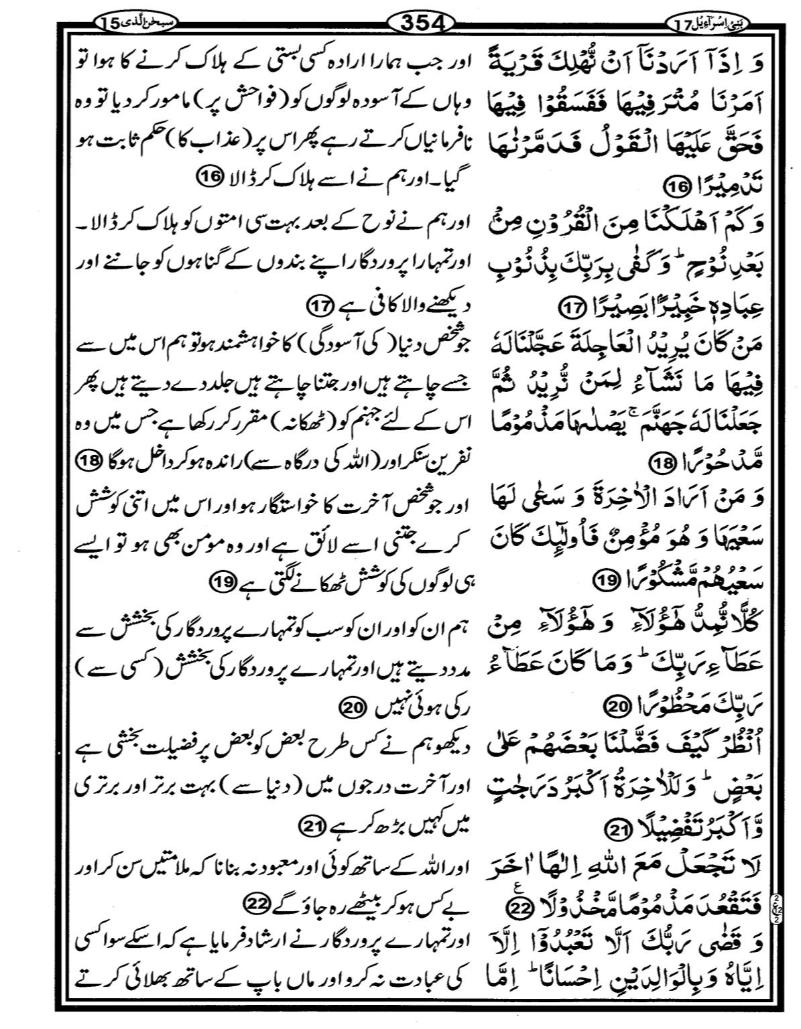 بَنِیْۤ اِسْرَآءِیْل 17
354
سبحٰن الّذی 15
وَ اِذَاۤ اَرَدْنَاۤ اَنْ نُّهْلِكَ قَرْيَةً
اَمَرْنَا مُتْرَفِيْهَا فَفَسَقُوْا فِيْهَا
فَحَقَّ عَلَيْهَا الْقَوْلُ فَدَمَّرْنٰهَا
تَدْمِيْرًا 16
وَ كَمْ اَهْلَكْنَا مِنَ الْقُرُوْنِ مِنْۢ
بَعْدِ نُوْحٍ ؕ وَ كَفٰى بِرَبِّكَ بِذُنُوْبِ
عِبَادِهٖ خَبِيْرًۢا بَصِيْرًا 17
مَنْ كَانَ يُرِيْدُ الْعَاجِلَةَ عَجَّلْنَا لَهٗ
فِيْهَا مَا نَشَآءُ لِمَنْ نُّرِيْدُ ثُمَّ
جَعَلْنَا لَهٗ جَهَنَّمَ ۚ يَصْلٰىهَا مَذْمُوْمًا
مَّدْحُوْرًا 18
وَ مَنْ اَرَادَ الْاٰخِرَةَ وَ سَعٰى لَهَا
سَعْيَهَا وَ هُوَ مُؤْمِنٌ فَاُولٰٓئِكَ كَانَ
سَعْيُهُمْ مَّشْكُوْرًا 19
كُلًّا نُّمِدُّ هٰۤؤُلَآءِ وَ هٰۤؤُلَآءِ مِنْ
عَطَآءِ رَبِّكَ ؕ وَ مَا كَانَ عَطَآءُ
رَبِّكَ مَحْظُوْرًا 20
اُنْظُرْ كَيْفَ فَضَّلْنَا بَعْضَهُمْ عَلٰى
بَعْضٍ ؕ وَ لَلْاٰخِرَةُ اَكْبَرُ دَرَجٰتٍ
وَّ اَكْبَرُ تَفْضِيْلًا 21
لَا تَجْعَلْ مَعَ اللّٰهِ اِلٰهًا اٰخَرَ
فَتَقْعُدَ مَذْمُوْمًا مَّخْذُوْلًا ع 22
وَ قَضٰى رَبُّكَ اَلَّا تَعْبُدُوْۤا اِلَّاۤ
اِيَّاهُ وَ بِالْوَالِدَيْنِ اِحْسَانًا ؕ اِمَّا
اور جب ہمارا ارادہ کسی بستی کے ہلاک کرنے کا ہوا تو
وہاں کے آسودہ لوگوں کو (فواحش پر) مامور کر دیا تو وہ
نافرمانیاں کرتے رہے پھر اس پر (عذاب کا) حکم ثابت ہو
گیا۔ اور ہم نے اسے ہلاک کر ڈالا 16
اور ہم نے نوح کے بعد بہت سی امتوں کو ہلاک کر ڈالا۔
اور تمہارا پروردگار اپنے بندوں کے گناہوں کو جاننے اور
دیکھنے والا کافی ہے 17
جو شخص دنیا (کی آسودگی) کا خواہشمند ہو تو ہم اس میں سے
جسے چاہتے ہیں اور جتنا چاہتے ہیں جلد دے دیتے ہیں پھر
اس کے لئے جہنم کو (ٹھکانہ) مقرر کر رکھا ہے جس میں وہ
نفرین سنکر اور (اللہ کی درگاہ سے) راندہ ہو کر داخل ہو گا 18
اور جو شخص آخرت کا خواستگار ہو اور اس میں اتنی کوشش
کرے جتنی اسے لائق ہے اور وہ مومن بھی ہو تو ایسے
ہی لوگوں کی کوشش ٹھکانے لگتی ہے 19
ہم ان کو اور ان کو سب کو تمہارے پروردگار کی بخشش سے
مدد دیتے ہیں اور تمہارے پروردگار کی بخشش (کسی سے)
رکی ہوئی نہیں 20
دیکھو ہم نے کس طرح بعض کو بعض پر فضیلت بخشی ہے
اور آخرت درجوں میں (دنیا سے) بہت برتر اور برتری
میں کہیں بڑھ کر ہے 21
اور اللہ کے ساتھ کوئی اور معبود نہ بنانا کہ ملامتیں سن کر اور
بے کس ہو کر بیٹھے رہ جاؤ گے 22
اور تمہارے پروردگار نے ارشاد فرمایا ہے کہ اسکے سوا کسی
کی عبادت نہ کرو اور ماں باپ کے ساتھ بھلائی کرتے